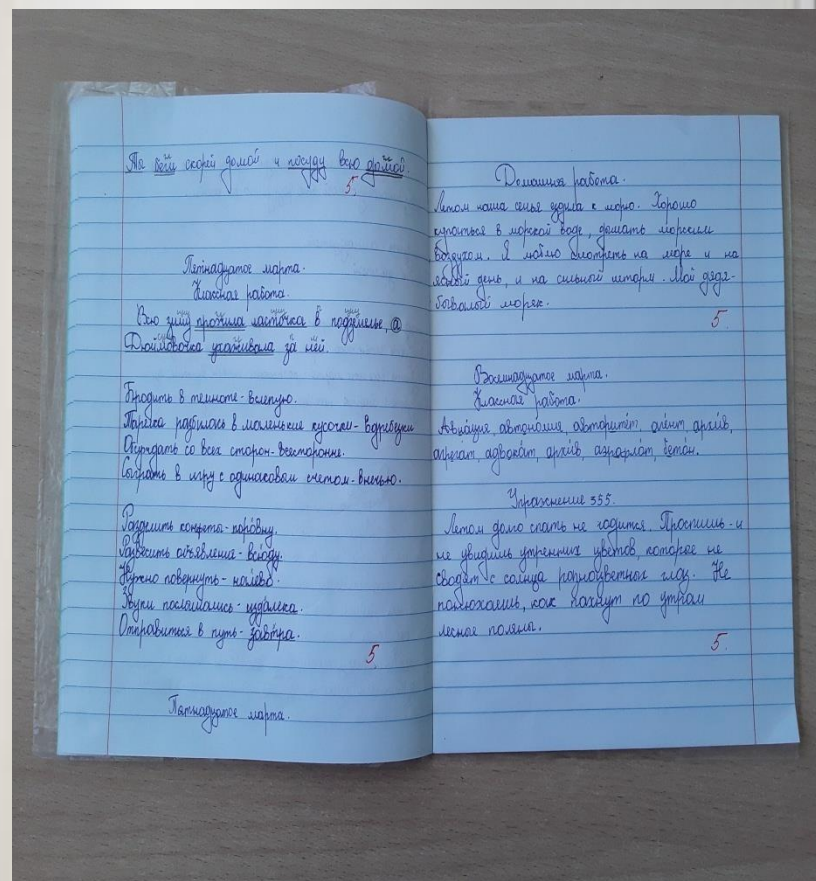 Ты беги скорей домой и посуду всю домой.
5.
Пятнадцатое марта.
Классная работа.
Всю зиму прожила ласточка в подземелье, а
Дюймовочка ухаживала за ней.
Бродить в темноте - вслепую.
Тарелка разбилась в маленькие кусочки - вдребезги
Обсуждать со всех сторон - всесторонне.
Сыграть в игру с одинаковым счетом - вничью.
Разделить конфеты - поровну.
Развесить объявления - всюду.
Нужно повернуть - налево.
Звуки послышались - издалека.
Отправиться в путь - завтра.
5.
Пятнадцатое марта.
Домашняя работа.
Летом наша семья ездила к морю. Хорошо
купаться в морской воде, дышать морским
воздухом. Я люблю смотреть на море и на
ясный день, и на сильный шторм. Мой дядя-
бывалый моряк.
5.
Восемнадцатое марта.
Классная работа.
Авиация, автономия, авторитет, агент, архив,
агрегат, адвокат, архив, аэрофлот, бетон.
Упражнение 355.
Летом долго спать не годится. Проспишь - и
не увидишь утренних цветов, которые не
сводят с солнца разноцветных глаз. Не
понюхаешь, как пахнут по утрам
лесные поляны.
5.